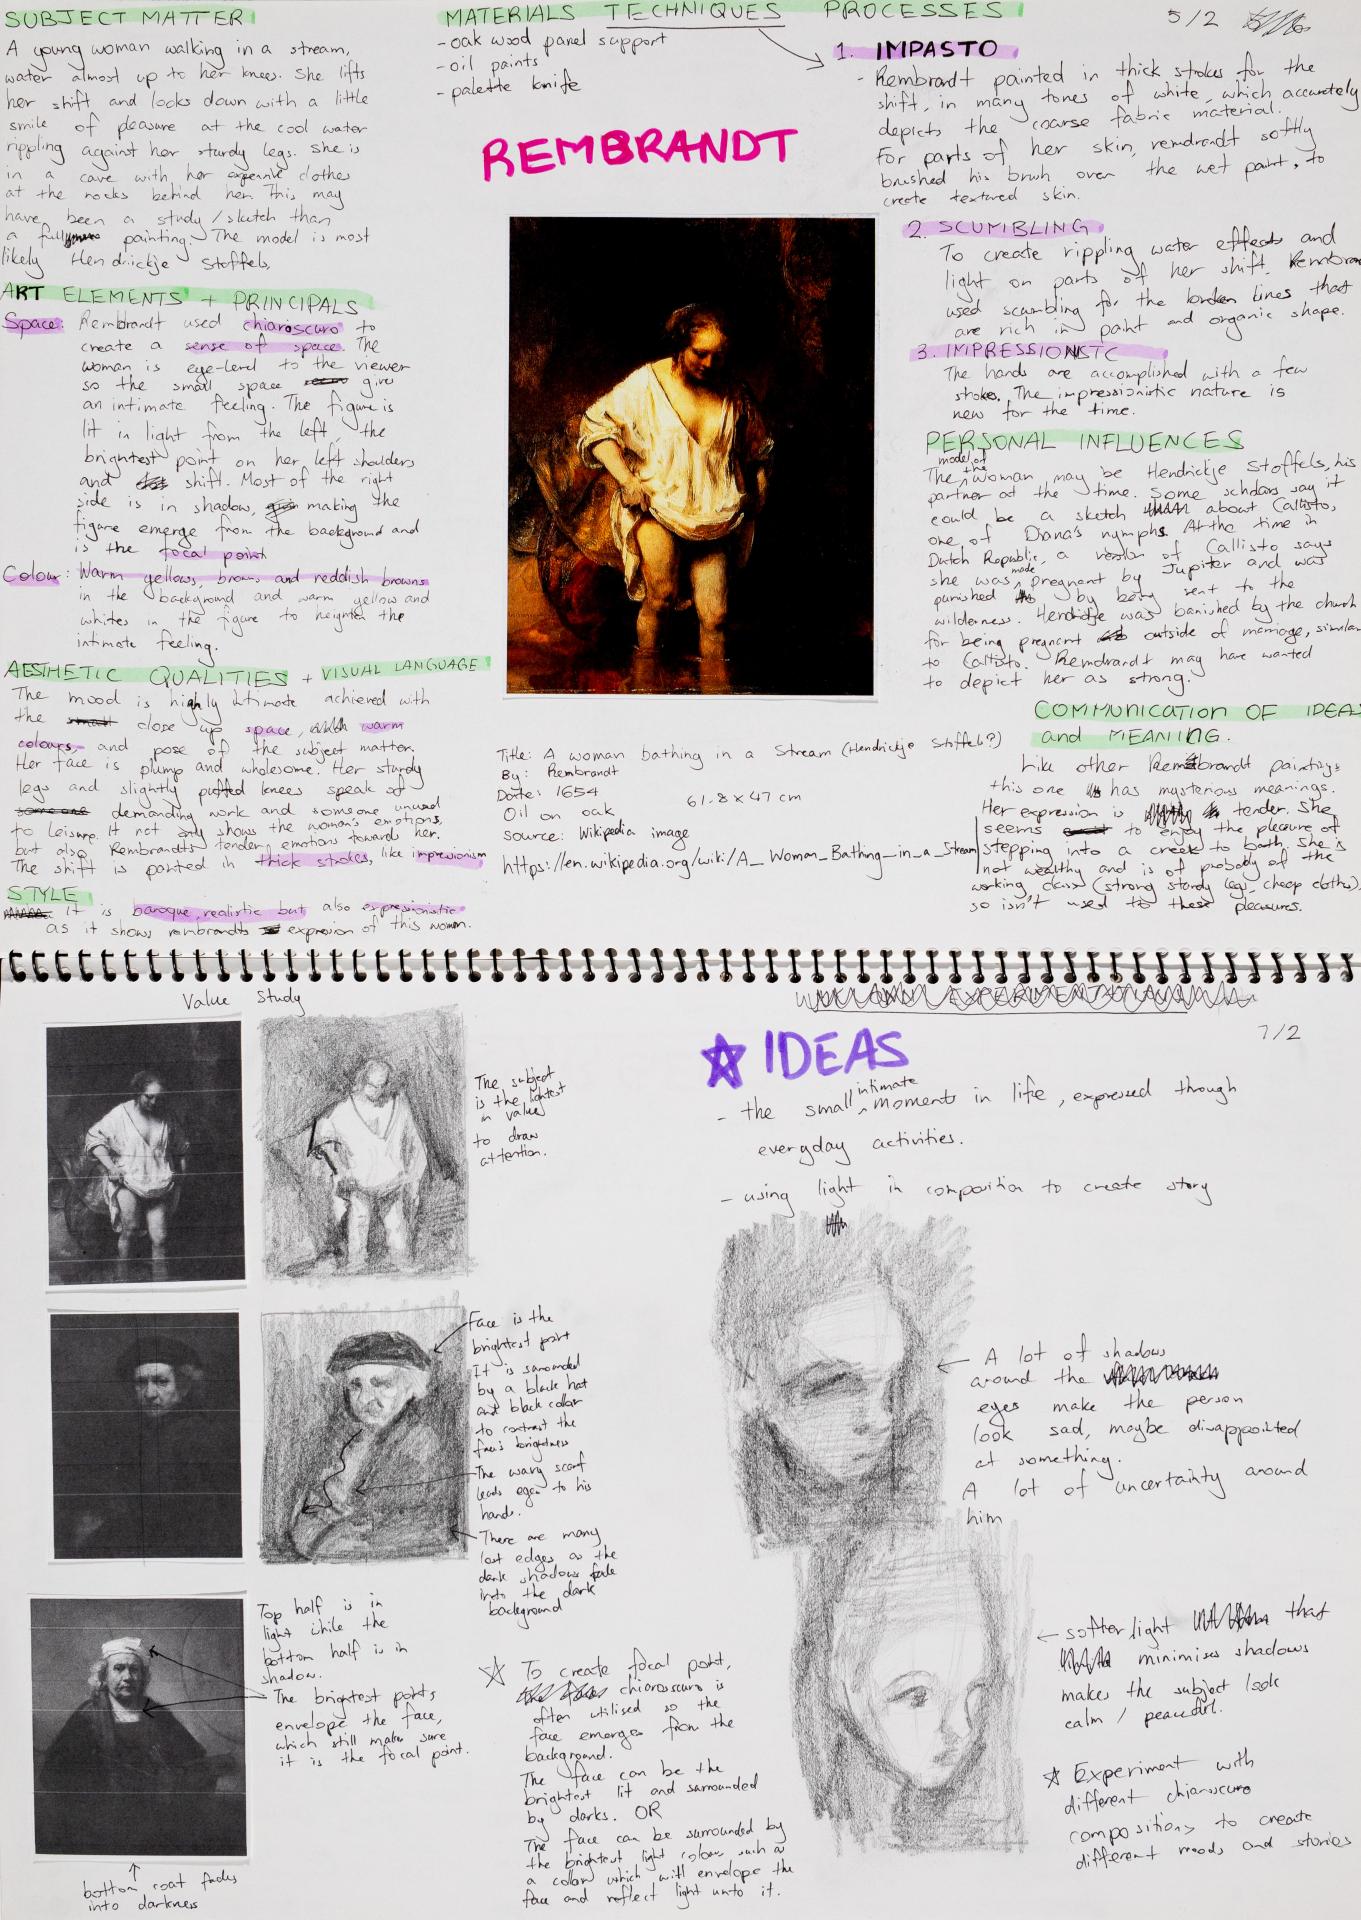 SUBJECT MATTER
A young woman walking in a stream,
water almost up to her knees. She lifts
her shift and looks down with a little
smile of pleasure at the cool water
rippling against her sturdy legs. She is
in a cave with her clothes
at the rocks behind her. This may
have been a study/sketch than
a fully painting. The model is most
likely Hendrickje Stoffels.
ART ELEMENTS + PRINCIPALS
Space: Rembrandt used chiaroscuro to
create a sense of space. The
woman is eye-level to the viewer
so the small space give
an intimate feeling. The figure is
lit in light from the left, the
brightest point on her left shoulders
and shift. Most of the right
side is in shadow, making the
figure emerge from the background and
is the focal point
Colour: Warm yellows, browns and reddish browns
in the background and warm yellow and
whites in the figure to heighten the
intimate feeling.
AESTHETIC QUALITIES + VISUAL LANGUAGE
The mood is highly intimate achieved with
the close up space, warm
colours, and pose of the subject matter.
Her face is plump and wholesome. Her sturdy
legs and slightly puffed knees speak of
demanding work and someone unused
to leisure. It not only shows the woman's emotions,
but also Rembrandts tender emotions towards her.
The shift is painted in thick strokes, like impressionism
STYLE
It is baroque, realistic but also expressionistic
as it shows rembrandts expression of this women.
MATERIALS TECHNIQUES PROCESSES
- oak wood panel support
- oil paints
- palette knife
REMBRANDT
Title: A woman bathing in a Stream (Hendrickje Stoffels?)
By: Rembrandt
Date: 1654
Oil on oak
61.8 x 47 cm
source: Wikipedia image
https://en.wikipedia.org/wiki/A_Woman_Bathing_in_a_Stream
5/2
1. IMPASTO
- Rembrandt painted in thick strokes for the
shift, in many tones of white, which accurately
depicts the coarse fabric material.
For parts of her skin, remdrandt softly
brushed his brush over the wet paint, to
create textured skin.
2. SCUMBLING
To create rippling water effects and
light on parts of her shift. Rembran
used scumbling for the broken lines that
are rich in paint and organic shape.
3. IMPRESSIONSTC
The hands are accomplished with a few
stokes. The impressionistic nature is
new for the time.
PERSONAL INFLUENCES
The model of the woman may be Hendrickje Stoffels, his
partner at the time. Some scholars say it
could be a sketch about Callisto,
one of Diana's nymphs. At the time in
Dutch Republic, a version of Callisto says
she was made pregnant by Jupiter and was
punished by being sent to the
wilderness. Hendrickje was banished by the church
for being pregnant outside of marriage, similar
to Callisto. Remdrandt may have wanted
to depict her as strong.
COMMUNICATION OF IDEAS
and MEANING.
Like other Rembrandt paintings
this one has mysterious meanings.
Her expression is tender. She
seems to enjoy the pleasure of
stepping into a creek to bath. She is
not wealthy and is of probably of the
working class (strong sturdy legs, cheap clothes).
so isn't used to these pleasures.
Value Study
The subject
is the lightest
in value
to draw
attention.
Face is the
brightest part
It is surrounded
by a black hat
and black collar
to contrast the
face's brightness
The wavy scarf
leads eyes to his
hands.
There are many
lost edges as the
dark shadows fade
into the dark
background
Top half is in
light while the
bottom half is in
shadow.
The brightest points
envelope the face,
which still makes sure
it is the focal point.
bottom coat fades
into darkness
To create focal point,
chiaroscuro is
often utilised so the
face emerges from the
background.
The face can be the
brightest lit and surrounded
by darks. OR
The face can be surrounded by
the brightest light colour such as
a collar which will envelope the
face and reflect light unto it.
7/2
IDEAS
- the small intimate moments in life, expressed through
everyday activities.
- using light in composition to create story
A lot of shadows
around the
eyes make the person
look sad, maybe disappointed
at something.
A lot of uncertainty around
him
softer light that
minimises shadows
makes the subject look
calm / peaceful.
Experiment with
different chiaroscuro
compositions to create
different moods and stories